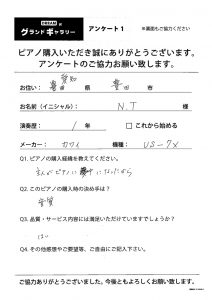 DREAM
グランドギャラリー アンケート1 ※裏面もご協力ください
ピアノ購入いただき誠にありがとうございます。
アンケートのご協力お願い致します。
お住い: 愛知 県 豊田 市
お名前(イニシャル): N.T 様
演奏歴: 1 年 □これから始める
メーカー: カワイ 機種: US-7X
Q1. ピアノの購入経緯を教えてください。
Q2. このピアノの購入時の決め手は?
音質
Q3. 品質・サービス内容には満足いただけていますでしょうか?
はい
Q4. その他感想やご要望等、ご自由にご記入下さい。
ご協力ありがとうございました。今後ともよろしくお願い致します。